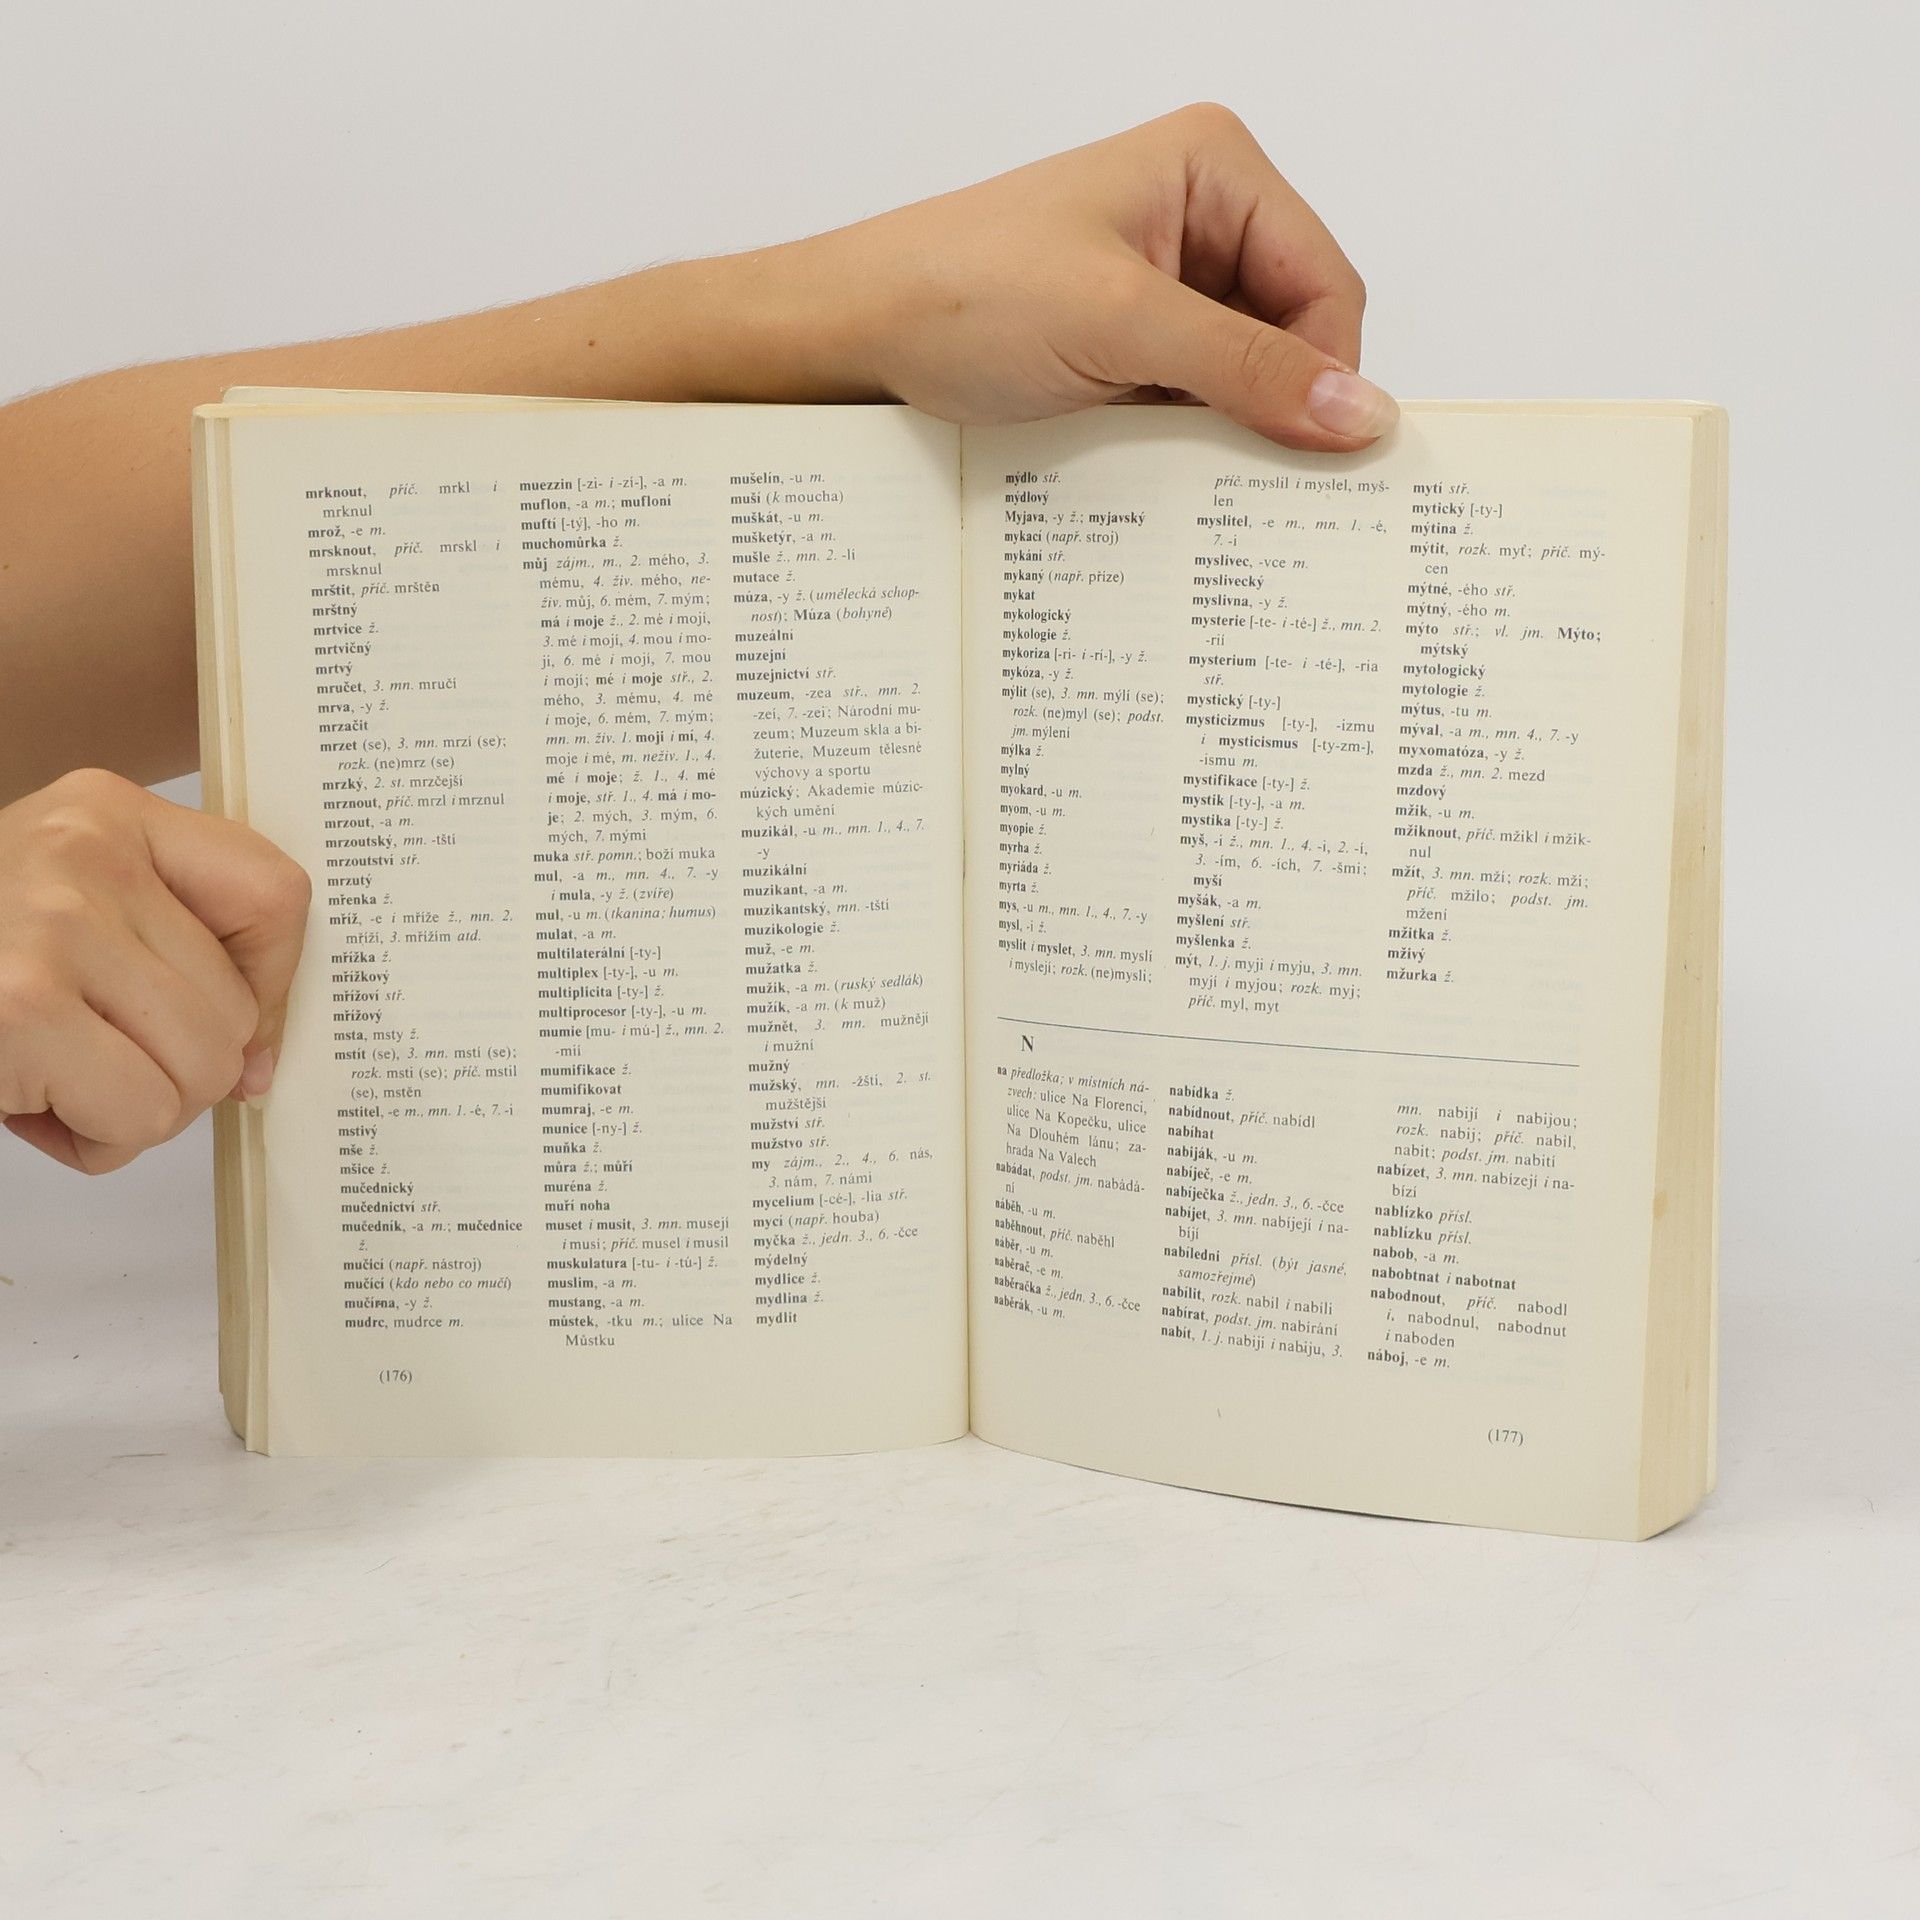 mrknout, příč. mrkl i
mrknul
mrož, -e m.
mrsknout, příč. mrskl i
mrsknul
mrštit, příč. mrštěn
mrštný
mrtvice ž.
mrtvičný
mrtvý
mručet, 3. mn. mručí
mrva, -y ž.
mrzačit
mrzet (se), 3. mn. mrzí (se);
rozk. (ne)mrz (se)
mrzký, 2. st. mrzčejší
mrznout, příč. mrzl i mrznul
mrzout, -a m.
mrzoutský, mn. -tští
mrzoutství stř.
mrzutý
mřenka ž.
mříž, -e i mříže ž., mn. 2.
mříží, 3. mřížím atd.
mřížka ž.
mřížkový
mřížoví stř.
mřížový
msta, msty ž.
mstít (se), 3. mn. mstí (se);
rozk. msti (se); příč. mstil
(se), mstěn
mstitel, -e m., mn. 1. -é, 7. -i
mstivý
mše ž.
mšice ž.
mučednický
mučednictví stř.
mučedník, -a m.; mučednice
ž.
mučicí (např. nástroj)
mučící (kdo nebo co mučí)
mučírna, -y ž.
mudrc, mudrce m.
(176)
muezzin [-zi- i -zí-], -a m.
muflon, -a m.; mufloní
muftí [-tý], -ho m.
muchomůrka ž.
můj zájm., m., 2. mého, 3.
mému, 4. živ. mého, ne-
živ. můj, 6. mém, 7. mým;
má i moje ž., 2. mé i mojí,
3. mé i mojí, 4. mou i mo-
ji, 6. mé i mojí, 7. mou
i mojí; mé i moje stř., 2.
mého, 3. mému, 4. mé
i moje, 6. mém, 7. mým;
mn. m. živ. 1. moji i mí, 4.
moje i mé, m. neživ. 1., 4.
mé i moje; ž. 1., 4. mé
i moje, stř. 1., 4. má i mo-
je; 2. mých, 3. mým, 6.
mých, 7. mými
muka stř. pomn.; boží muka
mul, -a m., mn. 4., 7. -y
i mula, -y ž. (zvíře)
mul, -u m. (tkanina; humus)
mulat, -a m.
multilaterální [-ty-]
multiplex [-ty-], -u m.
multiplicita [-ty-] ž.
multiprocesor [-ty-], -u m.
mumie [mu- i mú-] ž., mn. 2.
-mií
mumifikace ž.
mumifikovat
mumraj, -e m.
munice [-ny-] ž.
muňka ž.
můra ž.; můří
muréna ž.
muří noha
muset i musit, 3. mn. musejí
i musí; příč. musel i musil
muskulatura [-tu- i -tú-] ž.
muslim, -a m.
mustang, -a m.
můstek, -tku m.; ulice Na
Můstku
mušelín, -u m.
muší (k moucha)
muškát, -u m.
mušketýr, -a m.
mušle ž., mn. 2. -lí
mutace ž.
múza, -y ž. (umělecká schop-
nost); Múza (bohyně)
muzeální
muzejní
muzejnictví stř.
muzeum, -zea stř., mn. 2.
-zeí, 7. -zei; Národní mu-
zeum; Muzeum skla a bi-
žuterie, Muzeum tělesné
výchovy a sportu
múzický; Akademie múzic-
kých umění
muzikál, -u m., mn. 1., 4., 7.
-y
muzikální
muzikant, -a m.
muzikantský, mn. -tští
muzikologie ž.
muž, -e m.
mužatka ž.
mužik, -a m. (ruský sedlák)
mužík, -a m. (k muž)
mužnět, 3. mn. mužnějí
i mužní
mužný
mužský, mn. -žští, 2. st.
mužštější
mužství stř.
mužstvo stř.
my zájm., 2., 4., 6. nás,
3. nám, 7. námi
mycelium [-cé-], -lia stř.
mycí (např. houba)
myčka ž., jedn. 3., 6. -čce
mýdelný
mydlice ž.
mydlina ž.
mydlit
mýdlo stř.
mýdlový
Myjava, -y ž.; myjavský
mykací (např. stroj)
mykání stř.
mykaný (např. příze)
mykat
mykologický
mykologie ž.
mykoriza [-ri- i -rí-], -y ž.
mykóza, -y ž.
mýlit (se), 3. mn. mýlí (se);
rozk. (ne)myl (se); podst.
jm. mýlení
mýlka ž.
mylný
myokard, -u m.
myom, -u m.
myopie ž.
myrha ž.
myriáda ž.
myrta ž.
mys, -u m., mn. 1., 4., 7. -y
mysl, -i ž.
myslit i myslet, 3. mn. myslí
i myslejí; rozk. (ne)mysli;
příč. myslil i myslel, myš-
len
myslitel, -e m., mn. 1. -é,
7. -i
myslivec, -vce m.
myslivecký
myslivna, -y ž.
mysterie [-te- i -té-] ž., mn. 2.
-rií
mysterium [-te- i -té-], -ria
stř.
mystický [-ty-]
mysticizmus [-ty-], -izmu
i mysticismus [-ty-zm-],
-ismu m.
mystifikace [-ty-] ž.
mystik [-ty-], -a m.
mystika [-ty-] ž.
myš, -i ž., mn. 1., 4. -i, 2. -í,
3. -ím, 6. -ích, 7. -šmi;
myší
myšák, -a m.
myšlení stř.
myšlenka ž.
mýt, 1. j. myji i myju, 3. mn.
myjí i myjou; rozk. myj;
příč. myl, myt
mytí stř.
mytický [-ty-]
mýtina ž.
mýtit, rozk. myť; příč. mý-
cen
mýtné, -ého stř.
mýtný, -ého m.
mýto stř.; vl. jm. Mýto;
mýtský
mytologický
mytologie ž.
mýtus, -tu m.
mýval, -a m., mn. 4., 7. -y
myxomatóza, -y ž.
mzda ž., mn. 2. mezd
mzdový
mžik, -u m.
mžiknout, příč. mžikl i mžik-
nul
mžít, 3. mn. mží; rozk. mži;
příč. mžilo; podst. jm.
mžení
mžitka ž.
mživý
mžurka ž.
N
na předložka; v místních ná-
zvech: ulice Na Florenci,
ulice Na Kopečku, ulice
Na Dlouhém lánu; za-
hrada Na Valech
nabádat, podst. jm. nabádá-
ní
náběh, -u m.
naběhnout, příč. naběhl
náběr, -u m.
naběrač, -e m.
naběračka ž., jedn. 3., 6. -čce
naběrák, -u m.
nabídka ž.
nabídnout, příč. nabídl
nabíhat
nabiják, -u m.
nabíječ, -e m.
nabíječka ž., jedn. 3., 6. -čce
nabíjet, 3. mn. nabíjejí i na-
bíjí
nabíledni přísl. (být jasné,
samozřejmé)
nabílit, rozk. nabil i nabíli
nabírat, podst. jm. nabírání
nabít, 1. j. nabiji i nabiju, 3.
mn. nabijí i nabijou;
rozk. nabij; příč. nabil,
nabit; podst. jm. nabití
nabízet, 3. mn. nabízejí i na-
bízí
nablízko přísl.
nablízku přísl.
nabob, -a m.
nabobtnat i nabotnat
nabodnout, příč. nabodl
i nabodnul, nabodnut
i naboden
náboj, -e m.
(177)